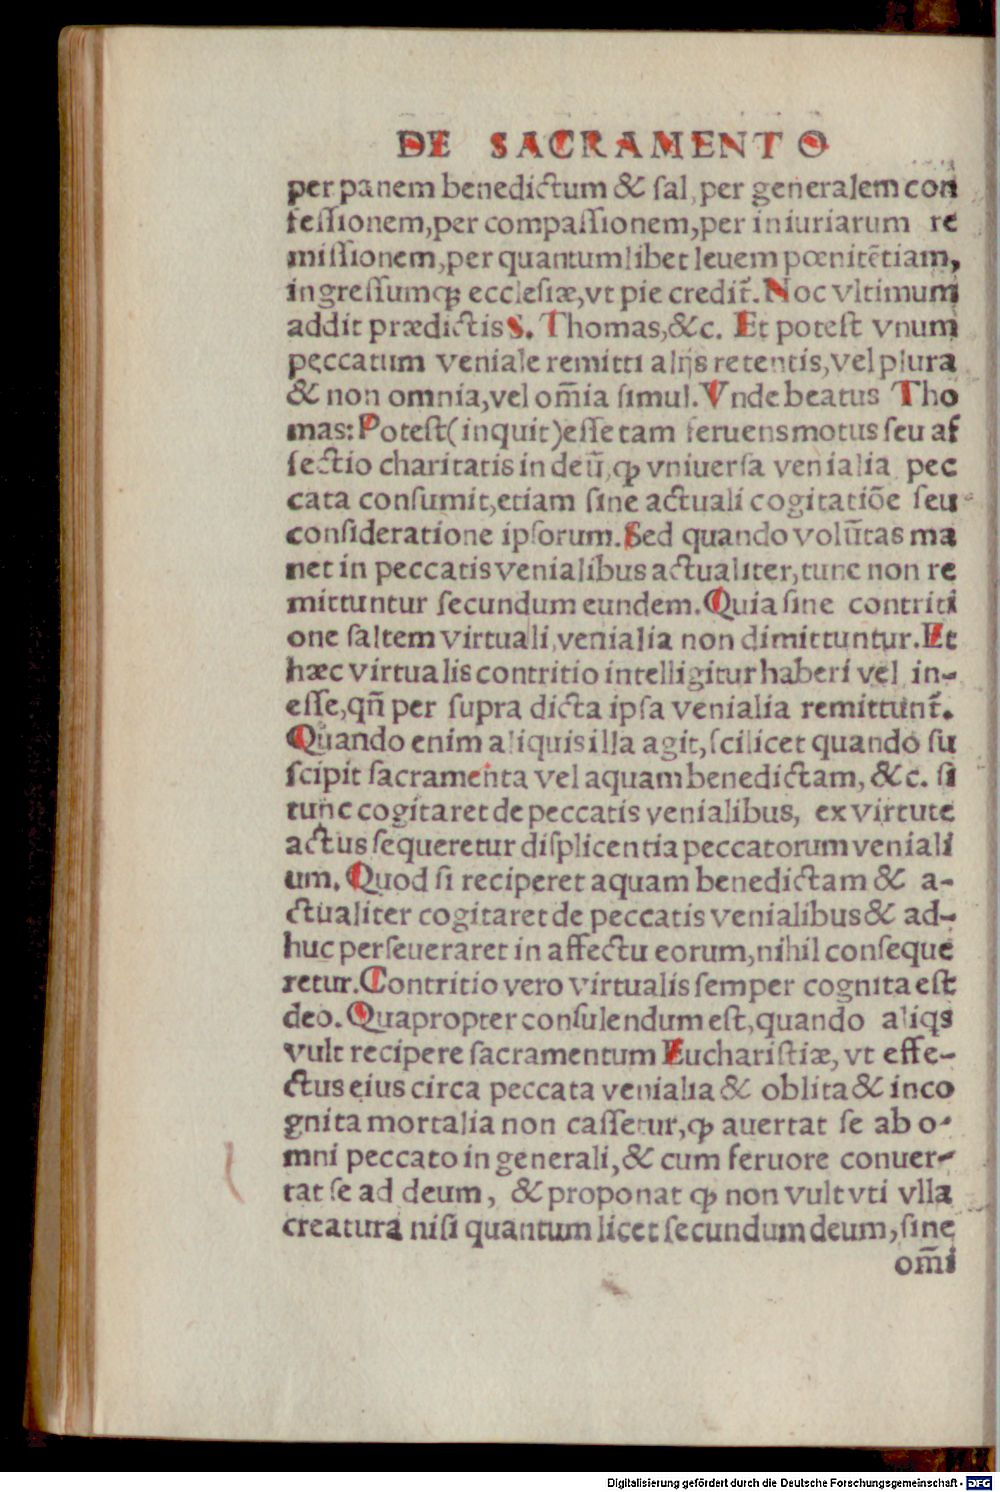 DE SACRAMENTO
per panem benedictum & sal, per generalem con
fessionem, per compassionem, per iniuriarum re
missionem, per quantumlibet leuem pœnitētiam,
ingressumqꝫ ecclesiæ, vt pie credit̄. Noc vltimum
addit prædictis S. Thomas, &c. Et potest vnum
peccatum veniale remitti alijs retentis, vel plura
& non omnia, vel om̄ia simul. Vnde beatus Tho
mas: Potest (inquit) esse tam feruens motus seu af
fectio charitatis in deū, ꝙ vniuersa venialia pec
cata consumit, etiam sine actuali cogitatiōe seu
consideratione ipsorum. Sed quando volūtas ma
net in peccatis venialibus actualiter, tunc non re
mittuntur secundum eundem. Quia sine contriti
one saltem virtuali, venialia non dimittuntur. Et
hæc virtualis contritio intelligitur haberi vel in-
esse, qn̄ per supra dicta ipsa venialia remittunt̄.
Quando enim aliquis illa agit, scilicet quando su
scipit sacramenta vel aquam benedictam, &c. si
tunc cogitaret de peccatis venialibus, ex virtute
actus sequeretur displicentia peccatorum veniali
um. Quod si reciperet aquam benedictam & a-
ctualiter cogitaret de peccatis venialibus & ad-
huc perseueraret in affectu eorum, nihil conseque
retur. Contritio vero virtualis semper cognita est
deo. Quapropter consulendum est, quando aliqs
vult recipere sacramentum Eucharistiæ, vt effe-
ctus eius circa peccata venialia & oblita & inco
gnita mortalia non cassetur, ꝙ auertat se ab o-
mni peccato in generali, & cum feruore conuer-
tat se ad deum, & proponat ꝙ non vult vti vlla
creatura nisi quantum licet secundum deum, sine
om̄i
Digitalisierung gefördert durch die Deutsche Forschungsgemeinschaft - DFG